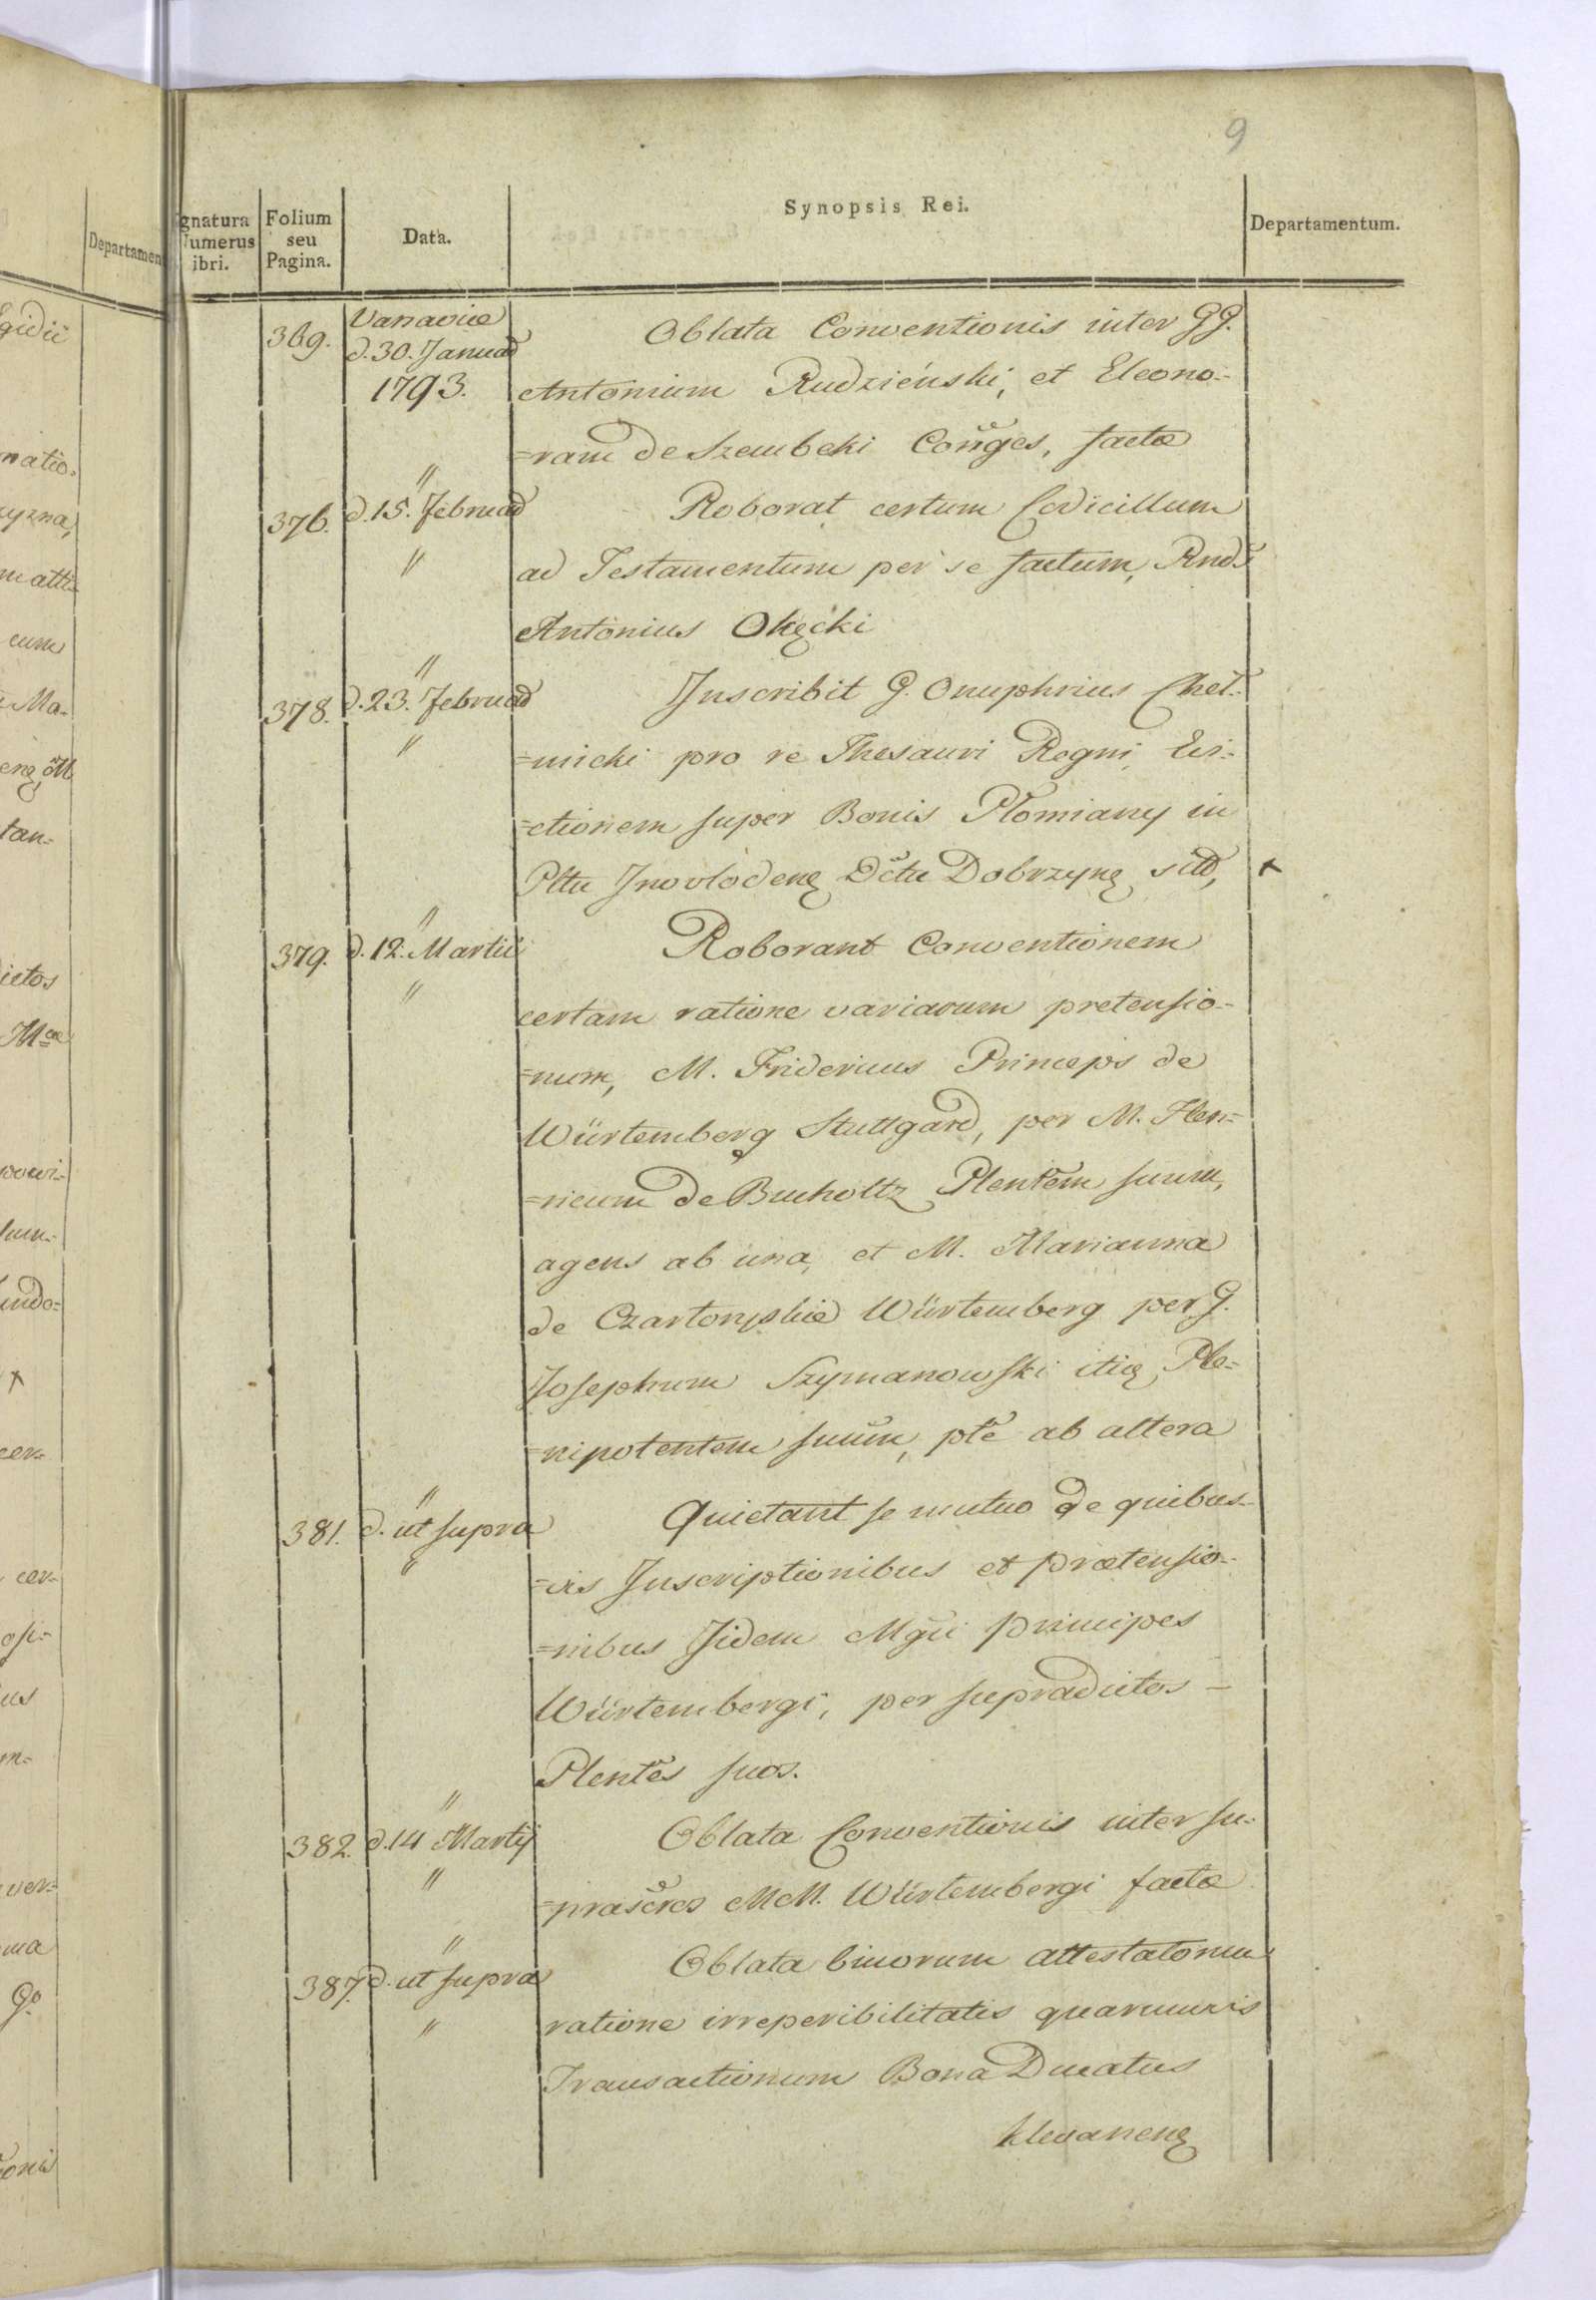 9
gnatura Numerus ibri.
Folium seu Pagina.
Data.
Synopsis Rei.
Departamentum.
369. Varsaviæ d. 30. Januar 1793.
Oblata Conventionis inter GG.
Antonium Rudzieński, et Eleono-
=ram de Szembeki Conges, factæ
376. " d. 15. Februar "
Roborat certum Codicillum
ad Testamentum per se factum, Rnds
Antonius Okęcki
378. " d. 23. Februar "
Inscribit G. Onuphrius Cheł-
=micki pro re Thesauri Regni, Evi-
=ctionem super Bonis Płomiany in
Pttu Inovlodeng Dctu Dobrzyng sitd,
379. " d. 12. Martii "
Roborant Conventionem
certam ratione variarum pretensio-
=num, M. Fridericus Princeps de
Würtemberg Stuttgard, per M. Hen-
=ricum de Bucholtz Plentem suum,
agens ab una, et M. Marianna
de Czartoryskie Würtemberg per G.
Josephum Szymanowski itig Ple-
=nipotentem suum, pte ab altera
381. " d. ut supra "
Quietant se mutuo de quibus-
=vis Inscriptionibus et prætensio-
=nibus Iidem Mgii Principes
Würtembergi, per supradictos -
Plentes suos.
382. " d. 14 Martij "
Oblata Conventionis inter su-
=prascres MM. Würtembergi factæ
387. " d. ut supra "
Oblata binorum attestatorum
ratione irreperibilitatis quarumvis
Transactionum Bona Ducatus
Klevaneng